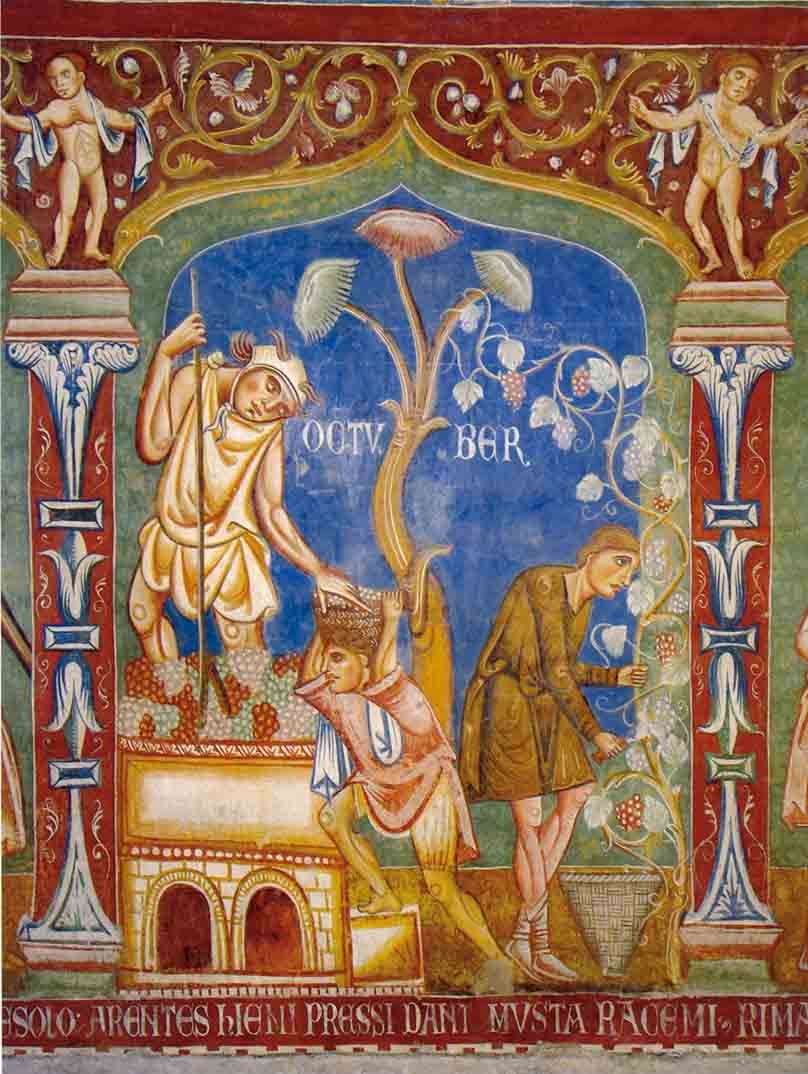 OCTU BER
ESOLO· ARENTES hIEMI PRESSI DANT MVSTA RACEMI· RIMA